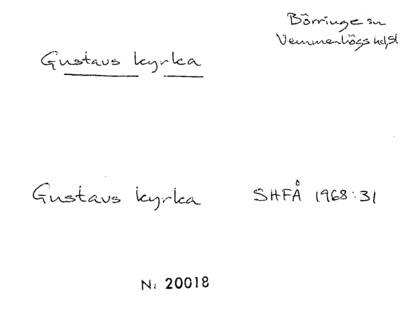 Börringe sn
Vemmenhögs hd, Sk
Gustavs kyrka
Gustavs kyrka SHFÅ 1968:31
N: 20018